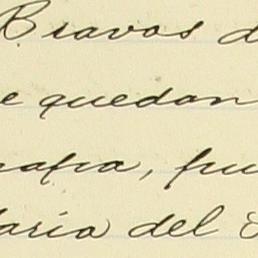 Bravos d
e quedan
nafia, fue
laria del